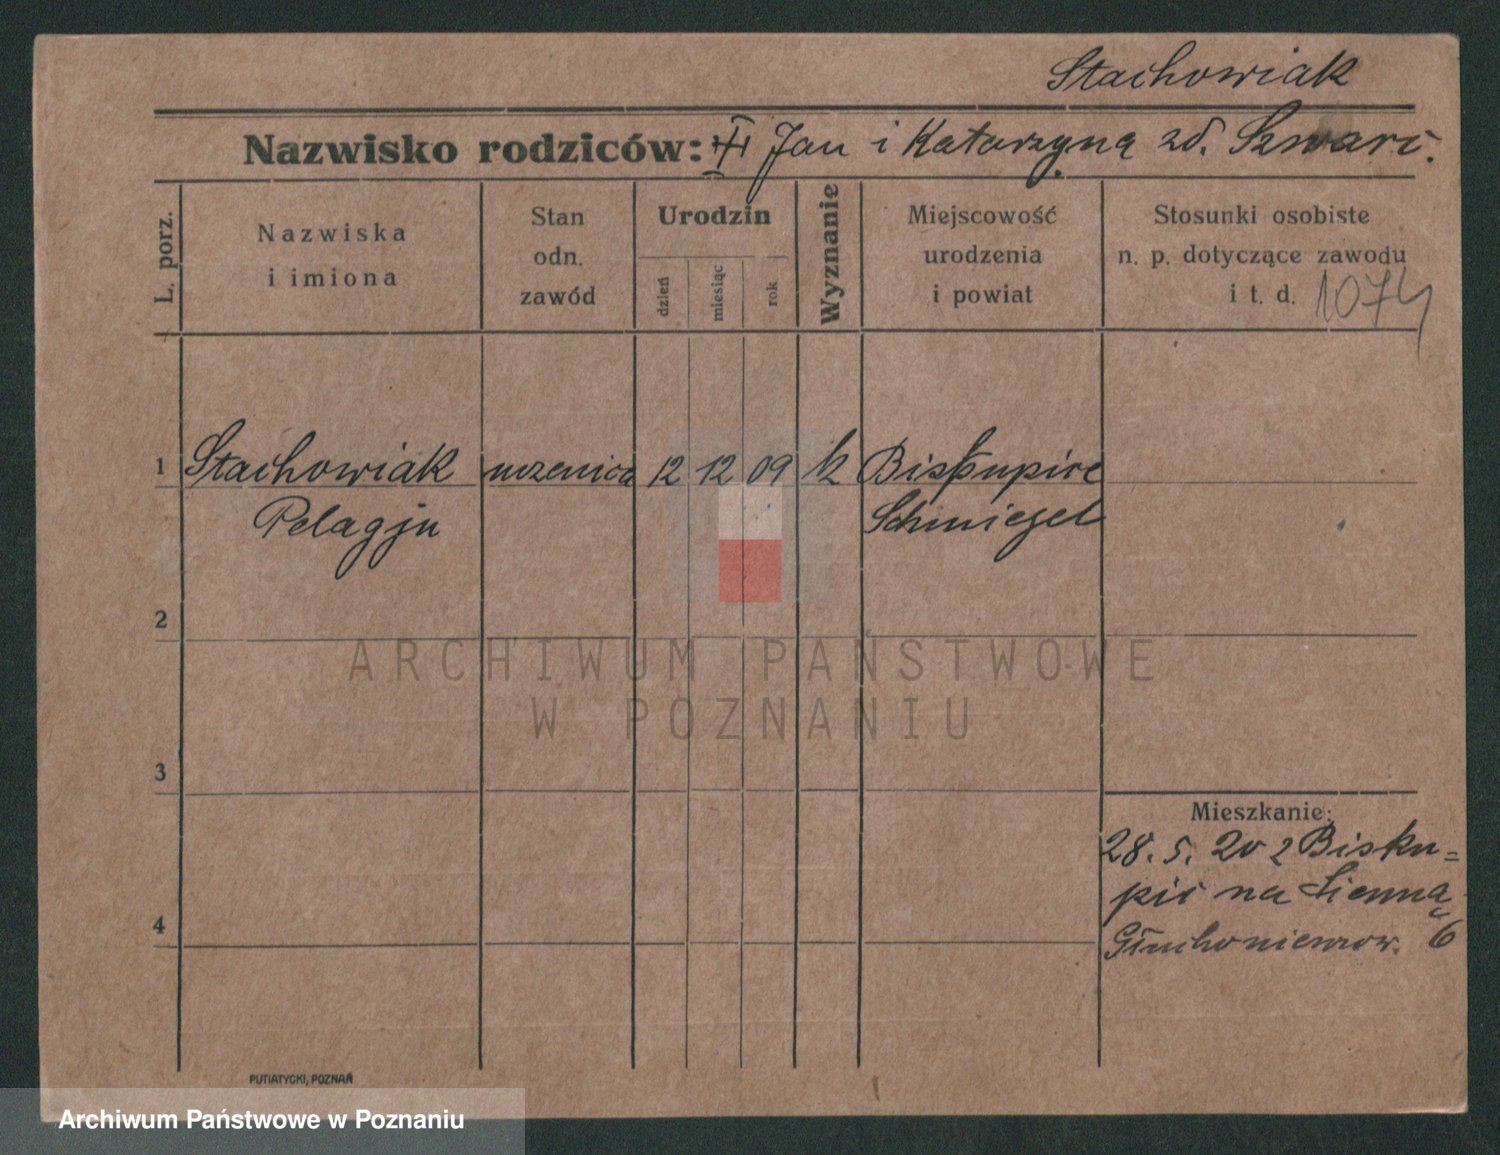 Stachowiak
Nazwisko rodziców: Jan i Katarzyna zd. Szwarc.
L. porz.
Nazwiska
i imiona
Stan
odn.
zawód
Urodzin
dzień
miesiąc
rok
Wyznanie
Miejscowość
urodzenia
i powiat
Stosunki osobiste
n. p. dotyczące zawodu
i t. d. 1074
1 Stachowiak uczenica 12 12 09 k Biskupice
Pelagja Schmiegel
2
ARCHIWUM PAŃSTWOWE
W POZNANIU
3
Mieszkanie:
28. 5. 20 z Bisku=
pic na Sienną
4
Głuchoniemow. 6
PUTIATYCKI, POZNAŃ
Archiwum Państwowe w Poznaniu